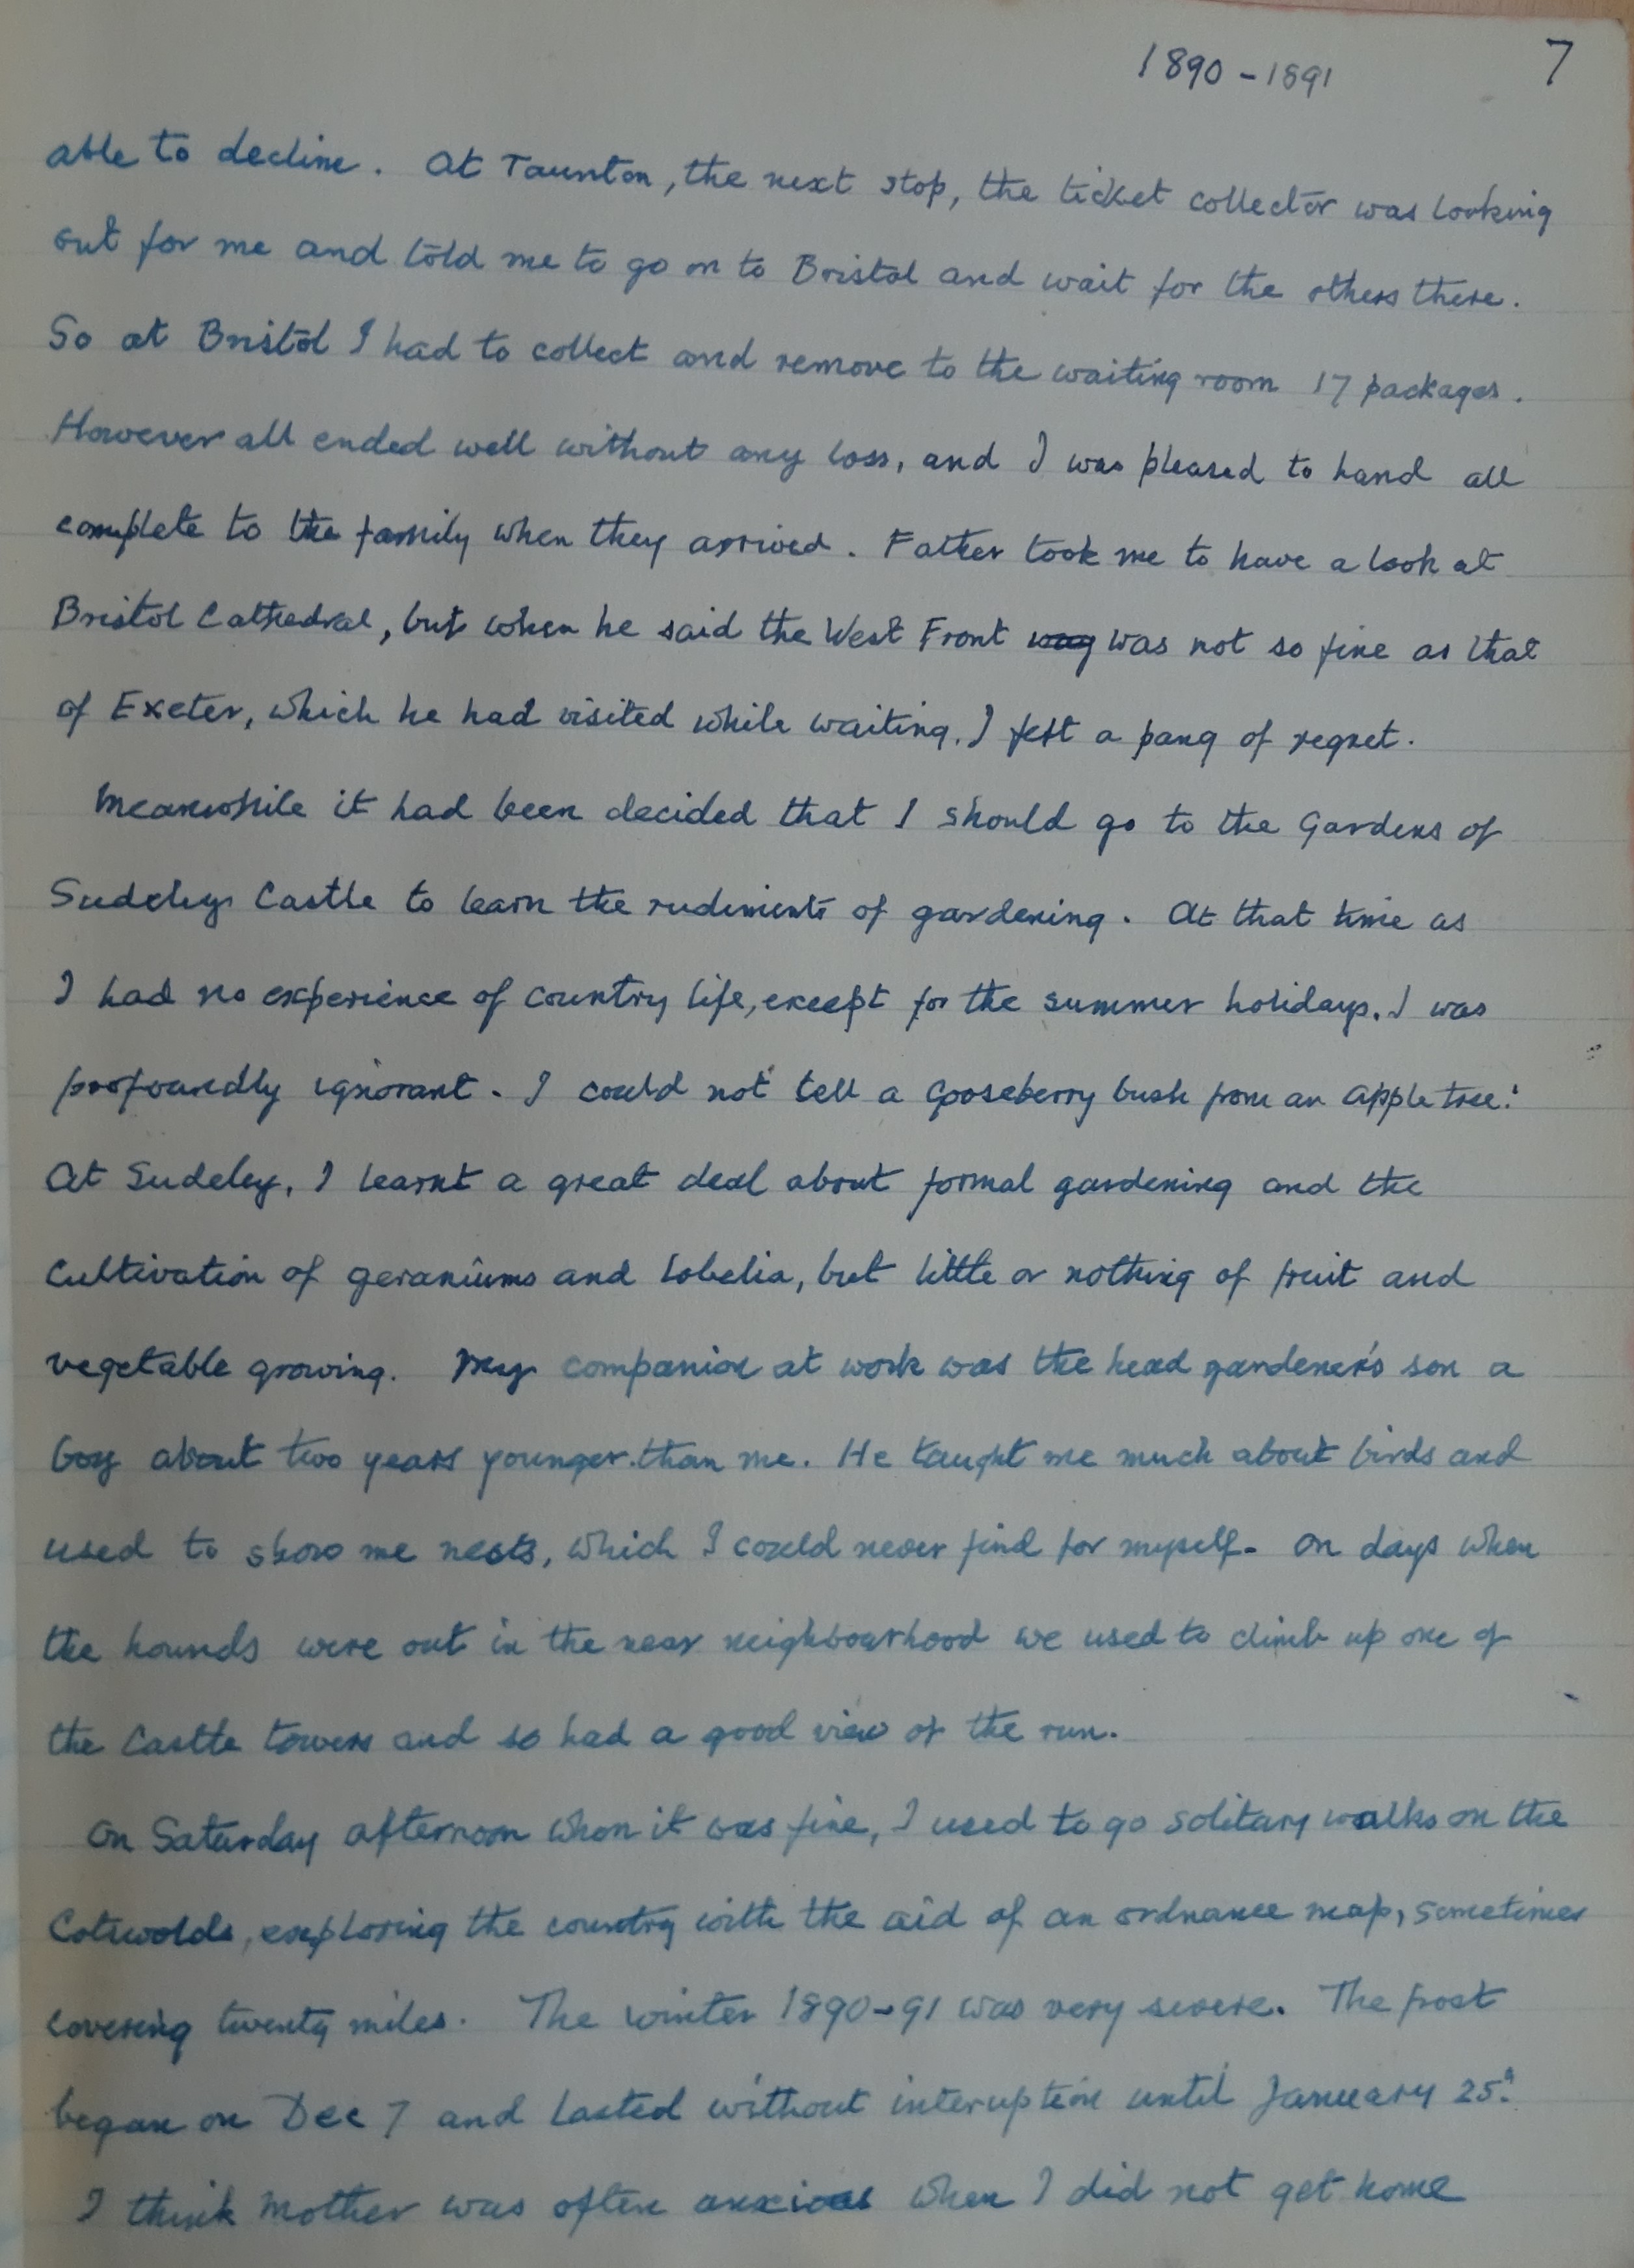 1890 - 1891 7
able to decline. At Taunton, the next stop, the ticket collector was looking
out for me and told me to go on to Bristol and wait for the others there.
So at Bristol I had to collect and remove to the waiting room 17 packages.
However all ended well without any loss, and I was pleased to hand all
complete to the family when they arrived. Father took me to have a look at
Bristol Cathedral, but when he said the West Front was was not so fine as that
of Exeter, which he had visited while waiting, I felt a pang of regret.
Meanwhile it had been decided that I should go to the Gardens of
Sudeley Castle to learn the rudiments of gardening. At that time as
I had no experience of country life, except for the summer holidays, I was
profoundly ignorant. I could not tell a Gooseberry bush from an apple tree!
At Sudeley, I learnt a great deal about formal gardening and the
cultivation of geraniums and lobelia, but little or nothing of fruit and
vegetable growing. My companion at work was the head gardener's son a
boy about two years younger than me. He taught me much about birds and
used to show me nests, which I could never find for myself. On days when
the hounds were out in the near neighbourhood we used to climb up one of
the Castle towers and so had a good view of the run.
On Saturday afternoon when it was fine, I used to go solitary walks on the
Cotswolds, exploring the country with the aid of an ordnance map, sometimes
covering twenty miles. The winter 1890-91 was very severe. The frost
began on Dec 7 and lasted without interuption until January 25!
I think Mother was often anxious when I did not get home